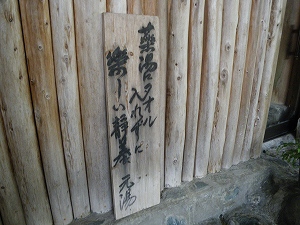 薬湯にタオル
入れずに
楽しい将棊
元湯